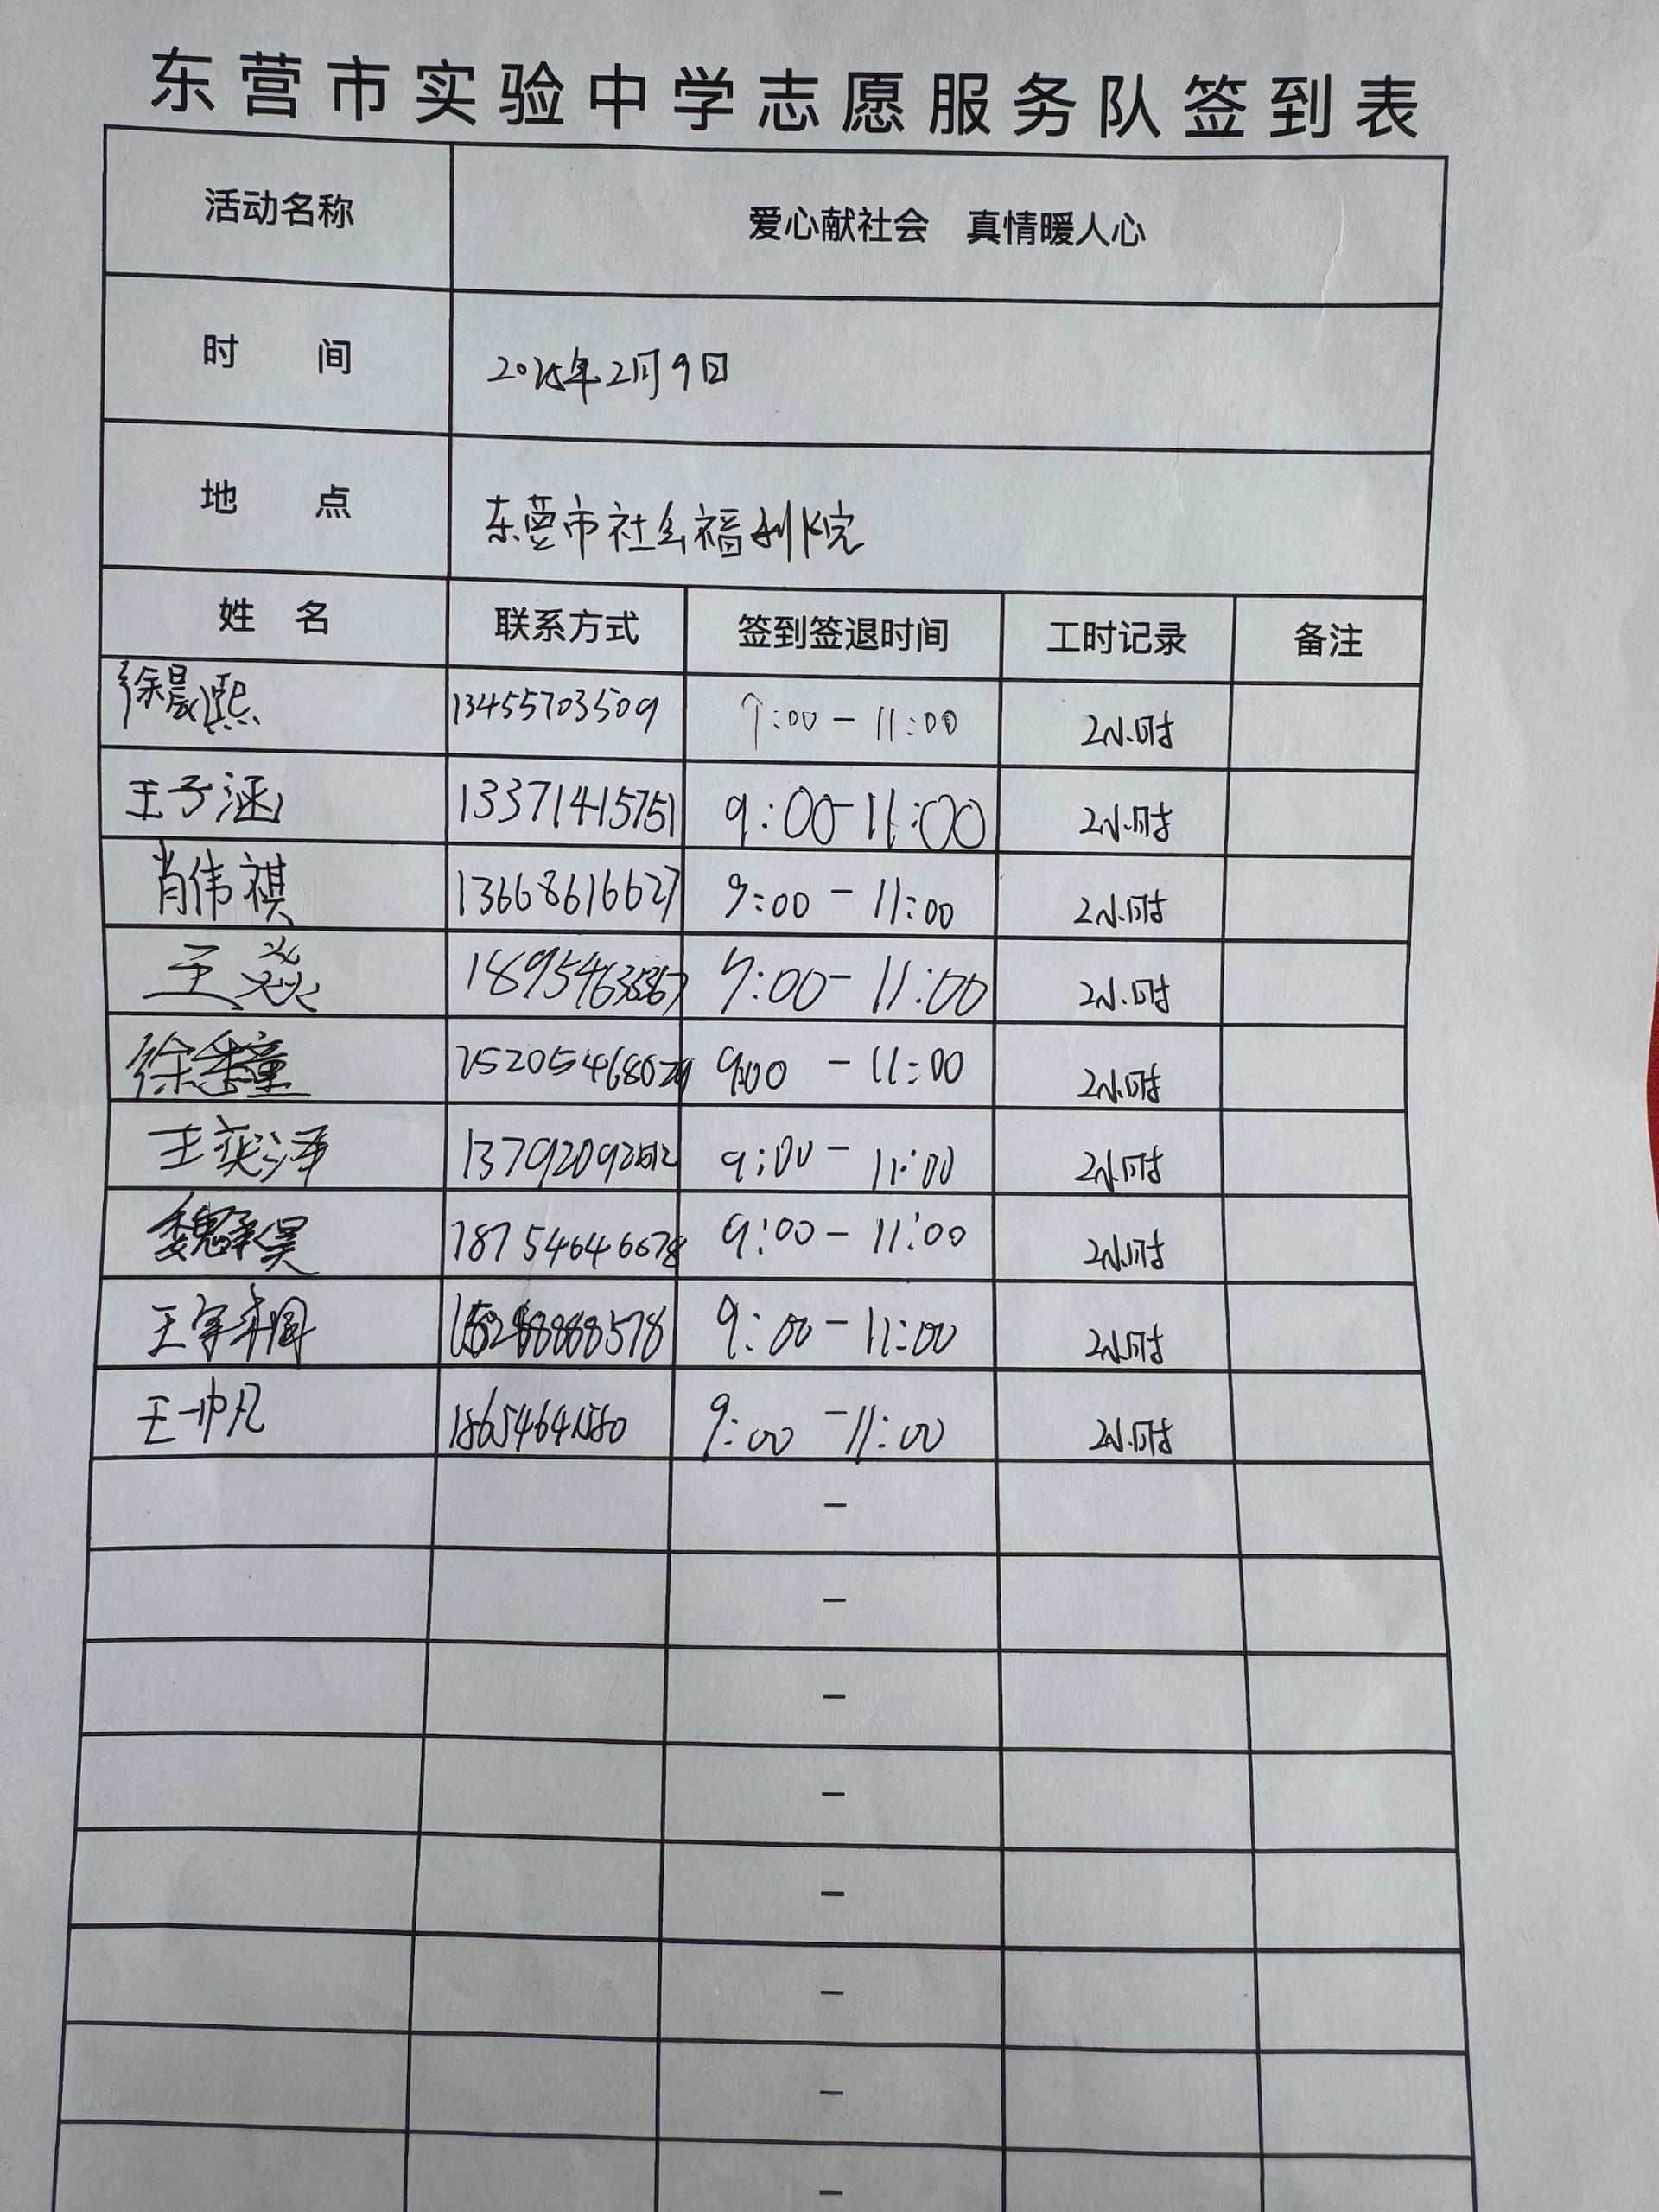 东营市实验中学志愿服务队签到表
活动名称 爱心献社会 真情暖人心
时 间 2025年2月9日
地 点 东营市社会福利院
姓 名 联系方式 签到签退时间 工时记录 备注
徐晨熙 13455703509 9:00-11:00 2小时
王子涵 13371415751 9:00-11:00 2小时
肖伟祺 13668616627 9:00-11:00 2小时
王焱 9:00-11:00 2小时
徐 童 9:00-11:00 2小时
王奕泽 9:00-11:00 2小时
魏承昊 18754646678 9:00-11:00 2小时
王宇 9:00-11:00 2小时
王帅凡 9:00-11:00 2小时
-
-
-
-
-
-
-
-